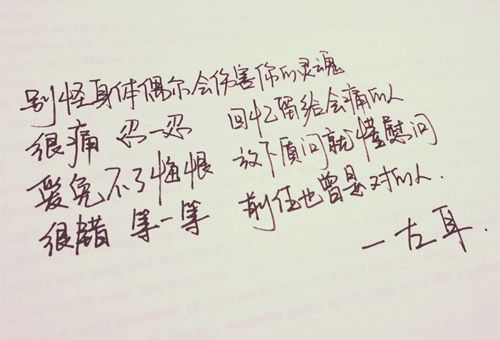 别怪身体偶尔会伤害你的灵魂
很痛 忍一忍 回忆留给会痛的人
爱免不了悔恨 放下质问就懂慰问
很 等一等 前任也曾是对的人.
—左耳.